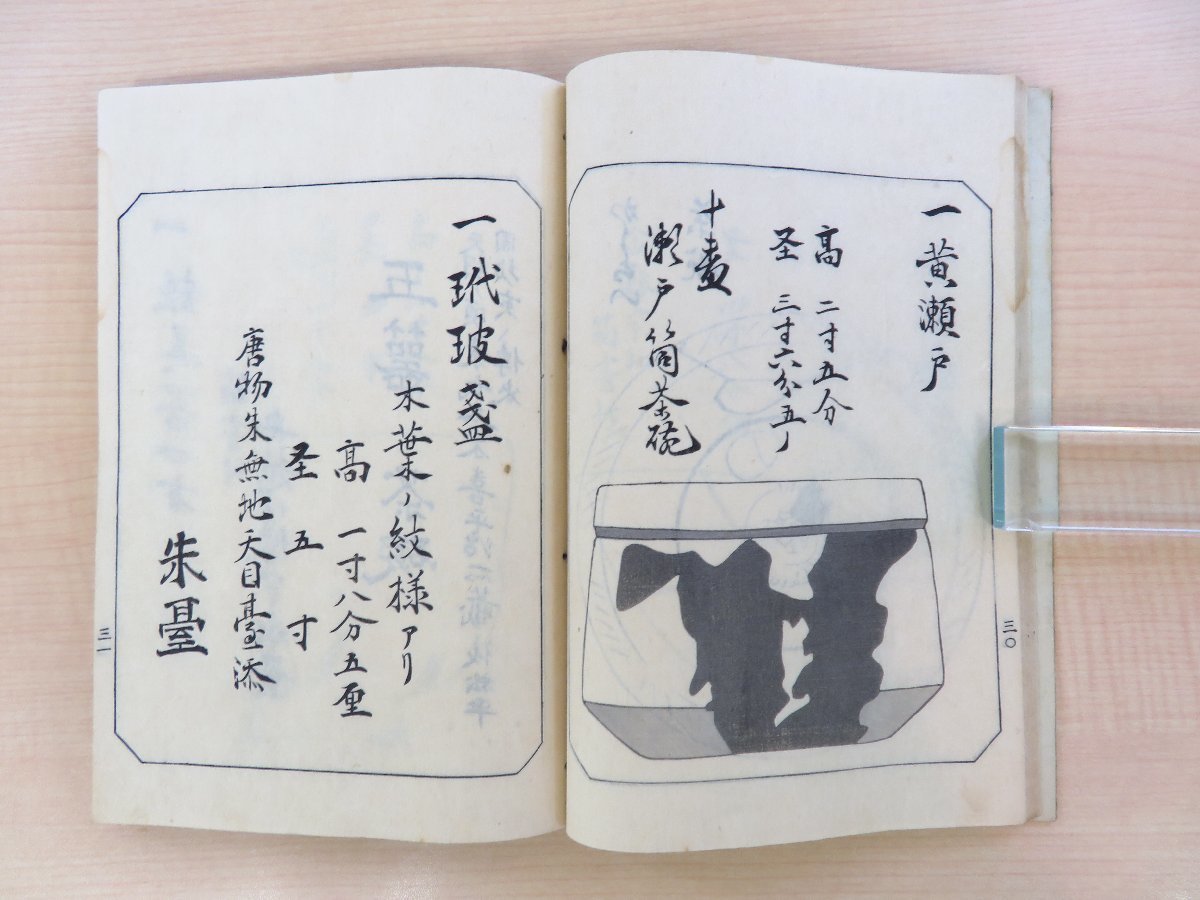 一 黄瀬戸
高 二寸五分
圣 三寸六分五ノ
瀬戸筒茶碗
三〇
一 玳玻盞
木葉ノ紋様アリ
高 一寸八分五厘
圣 五寸
唐物朱無地天目臺添
朱臺
三一